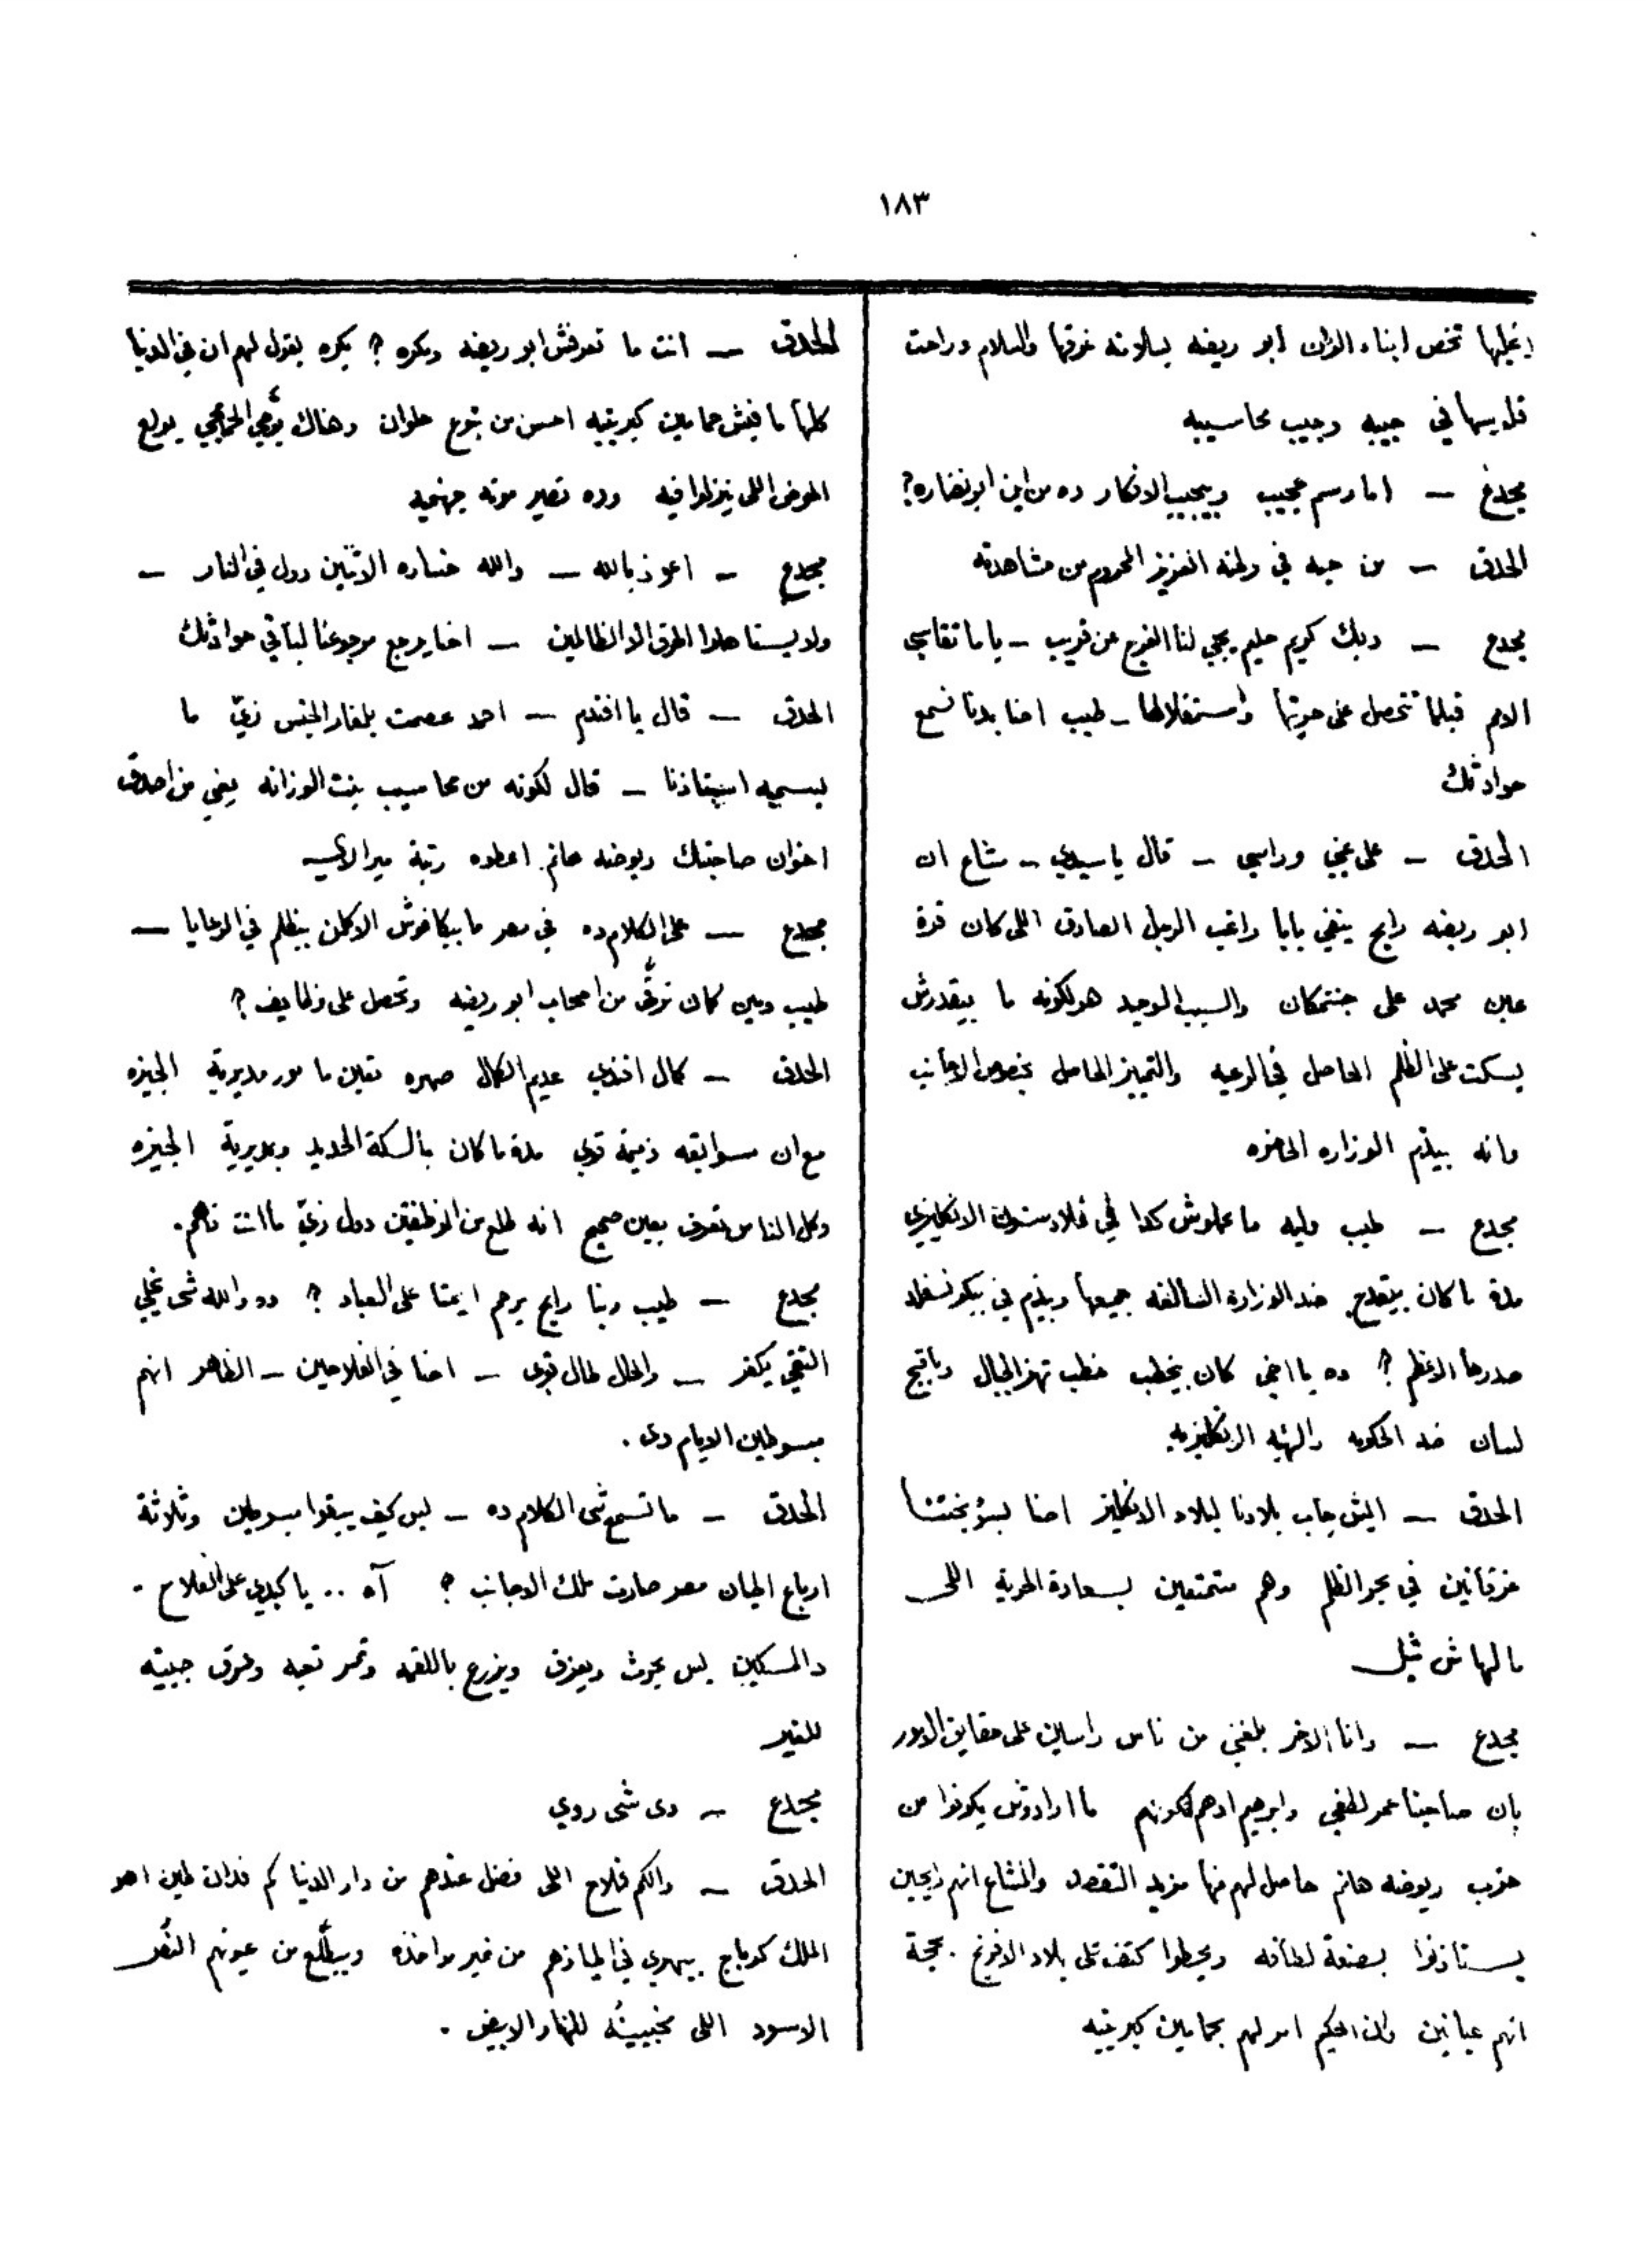 ١٨٣
تخص ابناء الوزان ابو ريضه بسلامته غرقها والسلام وراحت
في جيبه وجيب محاسيبه
مجدع — اما رسم عجيب ويعجب الافكار ده من اين ابو نضاره؟
الحلاق — من حبه في وطنه العزيز المحروم من مشاهدته
مجدع — ربك كريم حليم يجي لنا الفرج عن قريب — ياما تقاسي
الامم قبلما تتحصل على حريتها واستقلالها — طيب احنا بدنا نسمع
حوادثك
الحلاق — على عيني وراسي — قال يا سيدي — مشاع ان
ابو ريضه رايح ينفي بابا راغب الرجل الصادق اللى كان قرة
عين محمد على جنتمكان والسبب الوحيد هو لكونه ما بيقدرش
يسكت على الظلم الحاصل في الرعيه والتمييز الحاصل بخصوص الاجانب
وانه بيذم الوزاره الحاضره
مجدع — طيب وليه ما عملوش كدا في غلادستون الانكليزي
مدة ما كان بيقدح ضد الوزارة السالفه جميعها ويذم في بيكونسفلد
صدرها الاعظم؟ ده يا اخي كان يخطب خطب تهز الجبال وباقبح
لسان ضد الحكومه والهيئه الانكليزيه
الحلاق — ايش جاب بلادنا لبلاد الانكليز احنا لسؤ بختنا
غرقانين في بحر الظلم وهم متمتعين بسعادة الحرية اللى
مالهاش مثيل
مجدع — وانا الاخر بلغني من ناس راسيين على حقايق الامور
بان صاحبنا عمر لطفي وابرهيم ادهم لكونهم ما ارادوش يكونوا من
حزب ريوضه هانم حاصل لهم منها مزيد التقصد والمشاع انهم رايحين
يستاذنوا بصنعة لطافه ويحطوا كتف على بلاد الافرنج بحجة
انهم عيانين وان الحكيم امر لهم بحمامين كبريتيه
الحلاق — انت ما تعرفش ابو ريضه ومكره؟ بكره يقول لهم ان في الدنيا
كلها مافيش حمامين كبريتيه احسن من بتوع حلوان وهناك يوصي الحمامجي يولع
الحوض اللى ينزلوا فيه وده تصير موته جهنميه
مجدع — اعوذ بالله — والله خساره الاتنين دول في النار —
ولا يستاهلوا الحرق الا الظالمين — احنا يرجع مرجوعنا لباقي حوادثك
الحلاق — قال يا افندم — احمد عصمت بلغار الجنس زي ما
بيسميه استاذنا — قال لكونه من محاسيب بنت الوزانه يعني من اصدق
اخوان صاحبتك ريوضه هانم اعطوه رتبة ميرالاي
مجدع — على الكلام ده في مصر ما بيكافوش الا كلمن بيظلم في الرعايا —
طيب ومين كمان ترقى من اصحاب ابو ريضه وتحصل على وظايف؟
الحلاق — كمال افندي عديم الكمال صهره تعين مامور مديرية الجيزه
مع ان سوابقه ذميمة قوي مدة ما كان بالسكة الحديد وبمديرية الجيزه
وكل الناس تعرف بعين صحيح انه طلع من الوظفتين دول زي ما انت فاهم.
مجدع — طيب ربنا رايح يرحم ايمتا على العباد؟ ده والله شى يخلي
التقي يكفر — والحال طال قوى — احنا في الفلاحين — الظاهر انهم
مبسوطين الايام دى.
الحلاق — ما تسمعشى الكلام ده — بس كيف يبقوا مبسوطين وثلاثة
ارباع اطيان مصر صارت ملك الاجانب؟ آه .. يا كبدي على الفلاح.
دالمسكين بس يحرث ويعزق ويزرع باللقمه وثمر تعبه وعرق جبينه
للغير
مجدع — دى شى ردي
الحلاق — والكم فلاح اللى فضل عندهم من دار الدنيا كم فدان طين اهو
الملك كرباج بيهري في اطيازهم من غير مواخذه ويطلع من عيونهم القرش
الاسود اللى مخبينه للنهار الابيض.